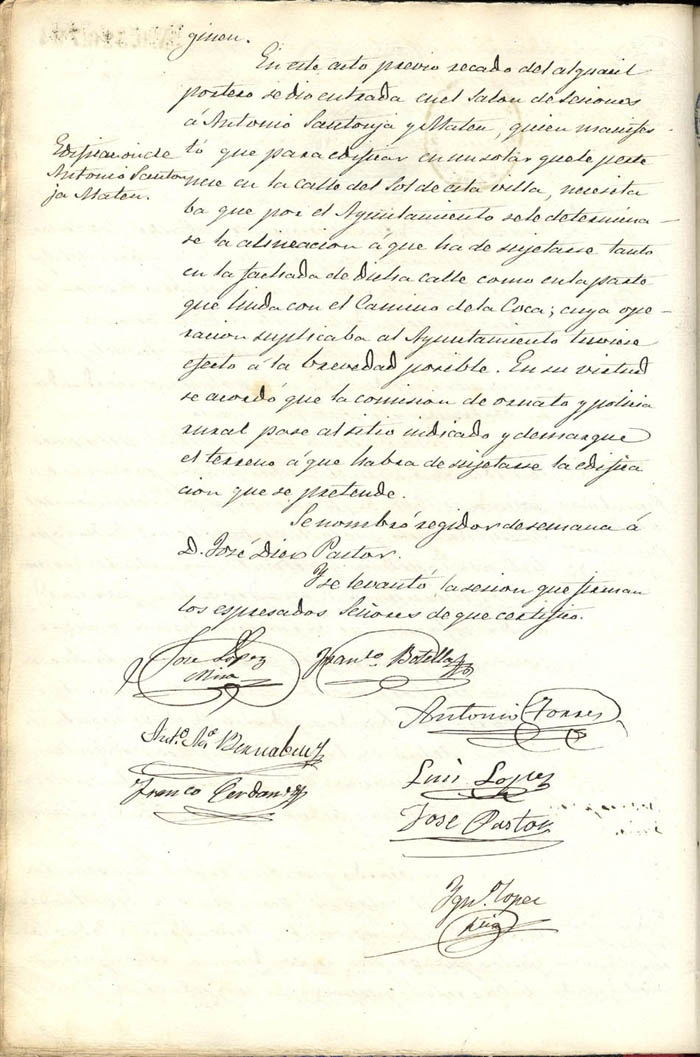 ginon.
En este acto previo recado del alguacil
portero se dio entrada en el Salon de Sesiones
á Antonio Santonja y Mateu, quien manifes
tó que para edificar en un solar que le perte
nece en la calle del Sol de esta villa, necesita
ba que por el Ayuntamiento se le determina-
se la alineacion á que ha de sujetarse tanto
en la fachada de dicha calle como en la parte
que linda con el Camino de la Coca; cuya ope-
racion suplicaba al Ayuntamiento tuviese
efecto á la brevedad posible. En su virtud
se acordó que la comision de ornato y policia
rural pase al sitio indicado y demarque
el terreno á que habra de sujetarse la edifica
cion que se pretende.
Se nombró regidor de semana á
D. José Dien Pastor.
Y se levantó la sesion que firman
los espresados Señores de que certifico.
Edificacion de
Antonio Santon
ja Mateu.
Jose Lopez
Mira
Franco. Botella
Antonio Torres
Anto. Ma. Bernabeu
Luis Lopez
Franco Cerdan
Jose Pastor
Ygno. Lopez